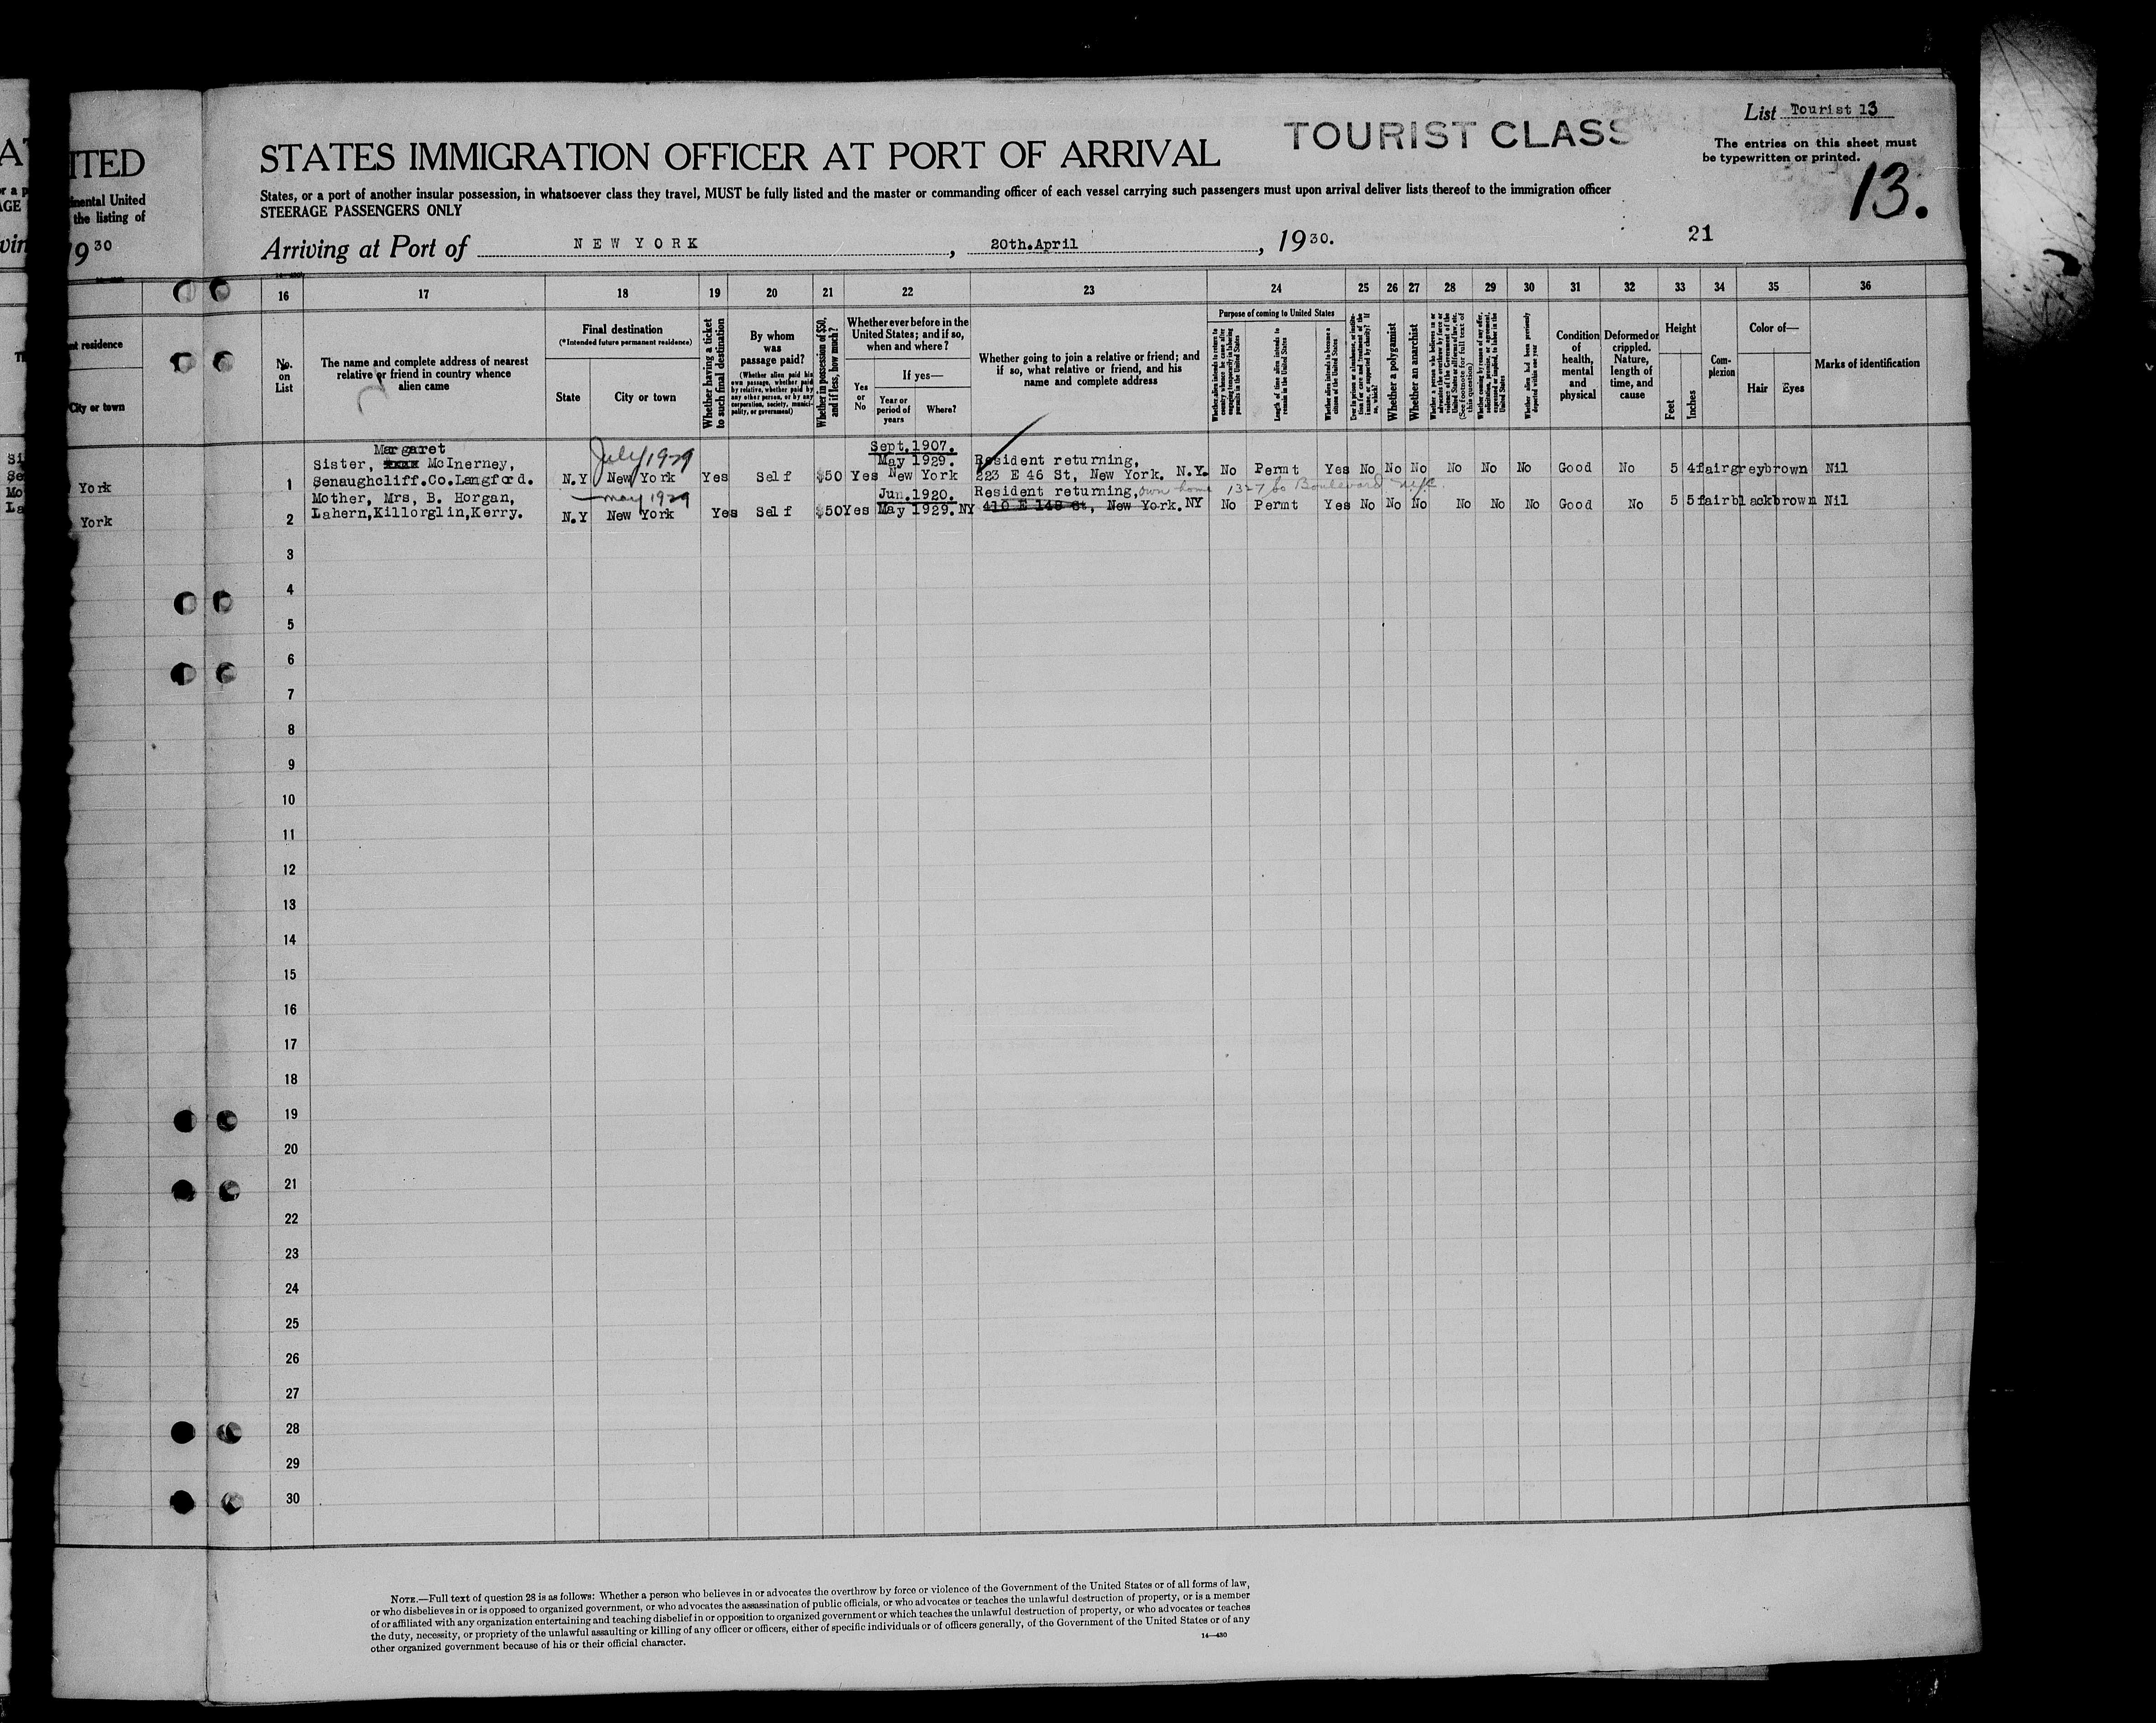 List Tourist 13
TOURIST CLASS
The entries on this sheet must
be typewritten or printed.
13.
ITED
STATES IMMIGRATION OFFICER AT PORT OF ARRIVAL
inental United
the listing of
States, or a port of another insular possession, in whatsoever class they travel, MUST be fully listed and the master or commanding officer of each vessel carrying such passengers must upon arrival deliver lists thereof to the immigration officer
STEERAGE PASSENGERS ONLY
1930
Arriving at Port of NEW YORK, 20th.April, 1930.
21
16 17 18 19 20 21 22 23 24 25 26 27 28 29 30 31 32 33 34 35 36
nt residence
City or town
No. on List
The name and complete address of nearest
relative or friend in country whence
alien came
Final destination
(*Intended future permanent residence)
State
City or town
Whether having a ticket
to such final destination
By whom
was
passage paid?
(Whether alien paid his
own passage, whether paid
by relative, whether paid by
any other person, or by any
corporation, society, munici-
pality, or government)
Whether in possession of $50,
and if less, how much?
Whether ever before in the
United States; and if so,
when and where?
Yes
or
No
If yes—
Year or
period of
years
Where?
Whether going to join a relative or friend; and
if so, what relative or friend, and his
name and complete address
Purpose of coming to United States
Whether alien intends to return to
country whence he came after
engaging temporarily in laboring
pursuits in the United States
Length of time alien intends to
remain in the United States
Whether alien intends to become a
citizen of the United States
Whether a polygamist
Whether an anarchist
Whether alien had been previously
deported within one year
Condition
of
health,
mental
and
physical
Deformed or
crippled.
Nature,
length of
time, and
cause
Height
Feet
Inches
Com-
plexion
Color of—
Hair
Eyes
Marks of identification
Margaret
July 1929
Sept.1907.
York
1 Sister, McInerney, May 1929. Resident returning,
Senaughcliff.Co.Langford. N.Y New York Yes Self $50 Yes New York 223 E 46 St, New York. N.Y. No Permt Yes No No No No No No Good No 5 4 fair grey brown Nil
May 1929
own home 1327 60 Boulevard
York
2 Mother, Mrs, B. Horgan, Jun.1920. Resident returning,
Lahern,Killorglin,Kerry. N.Y New York Yes Self $50 Yes May 1929. NY 410 E 148 St, New York. NY No Permt Yes No No No No No No Good No 5 5 fair black brown Nil
3
4
5
6
7
8
9
10
11
12
13
14
15
16
17
18
19
20
21
22
23
24
25
26
27
28
29
30
NOTE.—Full text of question 28 is as follows: Whether a person who believes in or advocates the overthrow by force or violence of the Government of the United States or of all forms of law,
or who disbelieves in or is opposed to organized government, or who advocates the assassination of public officials, or who advocates or teaches the unlawful destruction of property, or is a member
of or affiliated with any organization entertaining and teaching disbelief in or opposition to organized government or which teaches the unlawful destruction of property, or who advocates or teaches
the duty, necessity, or propriety of the unlawful assaulting or killing of any officer or officers, either of specific individuals or of officers generally, of the Government of the United States or of any
other organized government because of his or their official character.
14—430